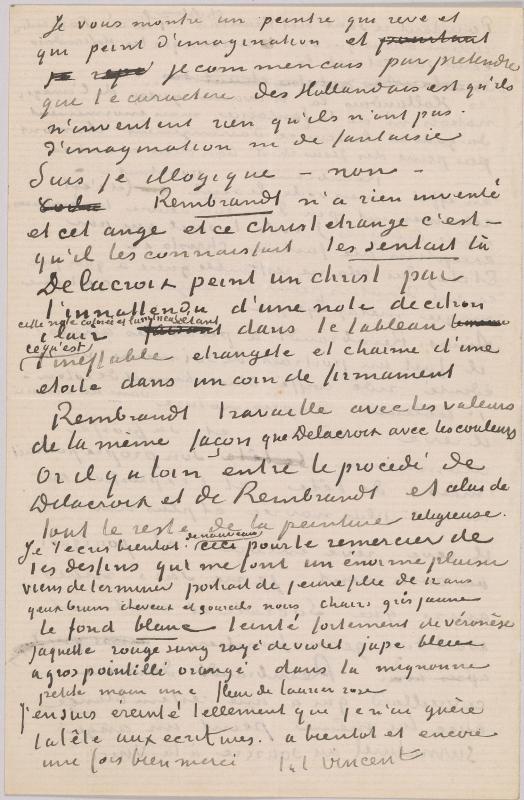 Je vous montre un peintre qui reve et
qui peint d'imagination et pourtant
je commencais par prétendre
que le caractère des Hollandais est qu'ils
n'inventent rien qu'ils n'ont pas
d'imagination ni de fantaisie
Suis je illogique – non –
Rembrandt n'a rien inventé
et cet ange et ce Christ etrange c'est –
qu'il les connaissait les sentait là
Delacroix peint un christ par
l'innattendu d'une note de citron
cette note colorée et lumineuse étant
clair dans le tableau
ce qu'est
l'ineffable etrangete et charme d'une
etoile dans un coin de firmament
Rembrandt travaille avec les valeurs
de la même façon que Delacroix avec les couleurs
Or il y a loin entre le procédé de
Delacroix et de Rembrandt et celui de
tout le reste de la peinture religieuse.
de nouveau
Je t'ecris bientot. ceci pour te remercier de
tes dessins qui me font un énorme plaisir
viens de terminer portrait de jeune fille de 12 ans
yeux bruns cheveux et sourcils noirs chairs gris jaune
le fond blanc teinté fortement de véronèse
jaquette rouge sang rayé de violet jupe bleue
a gros pointillé orangé dans la mignonne
petite main une fleur de laurier rose
J'en suis éreinté tellement que je n'ai guère
la tête aux ecritures. a bientot et encore
une fois bien merci t. à t Vincent